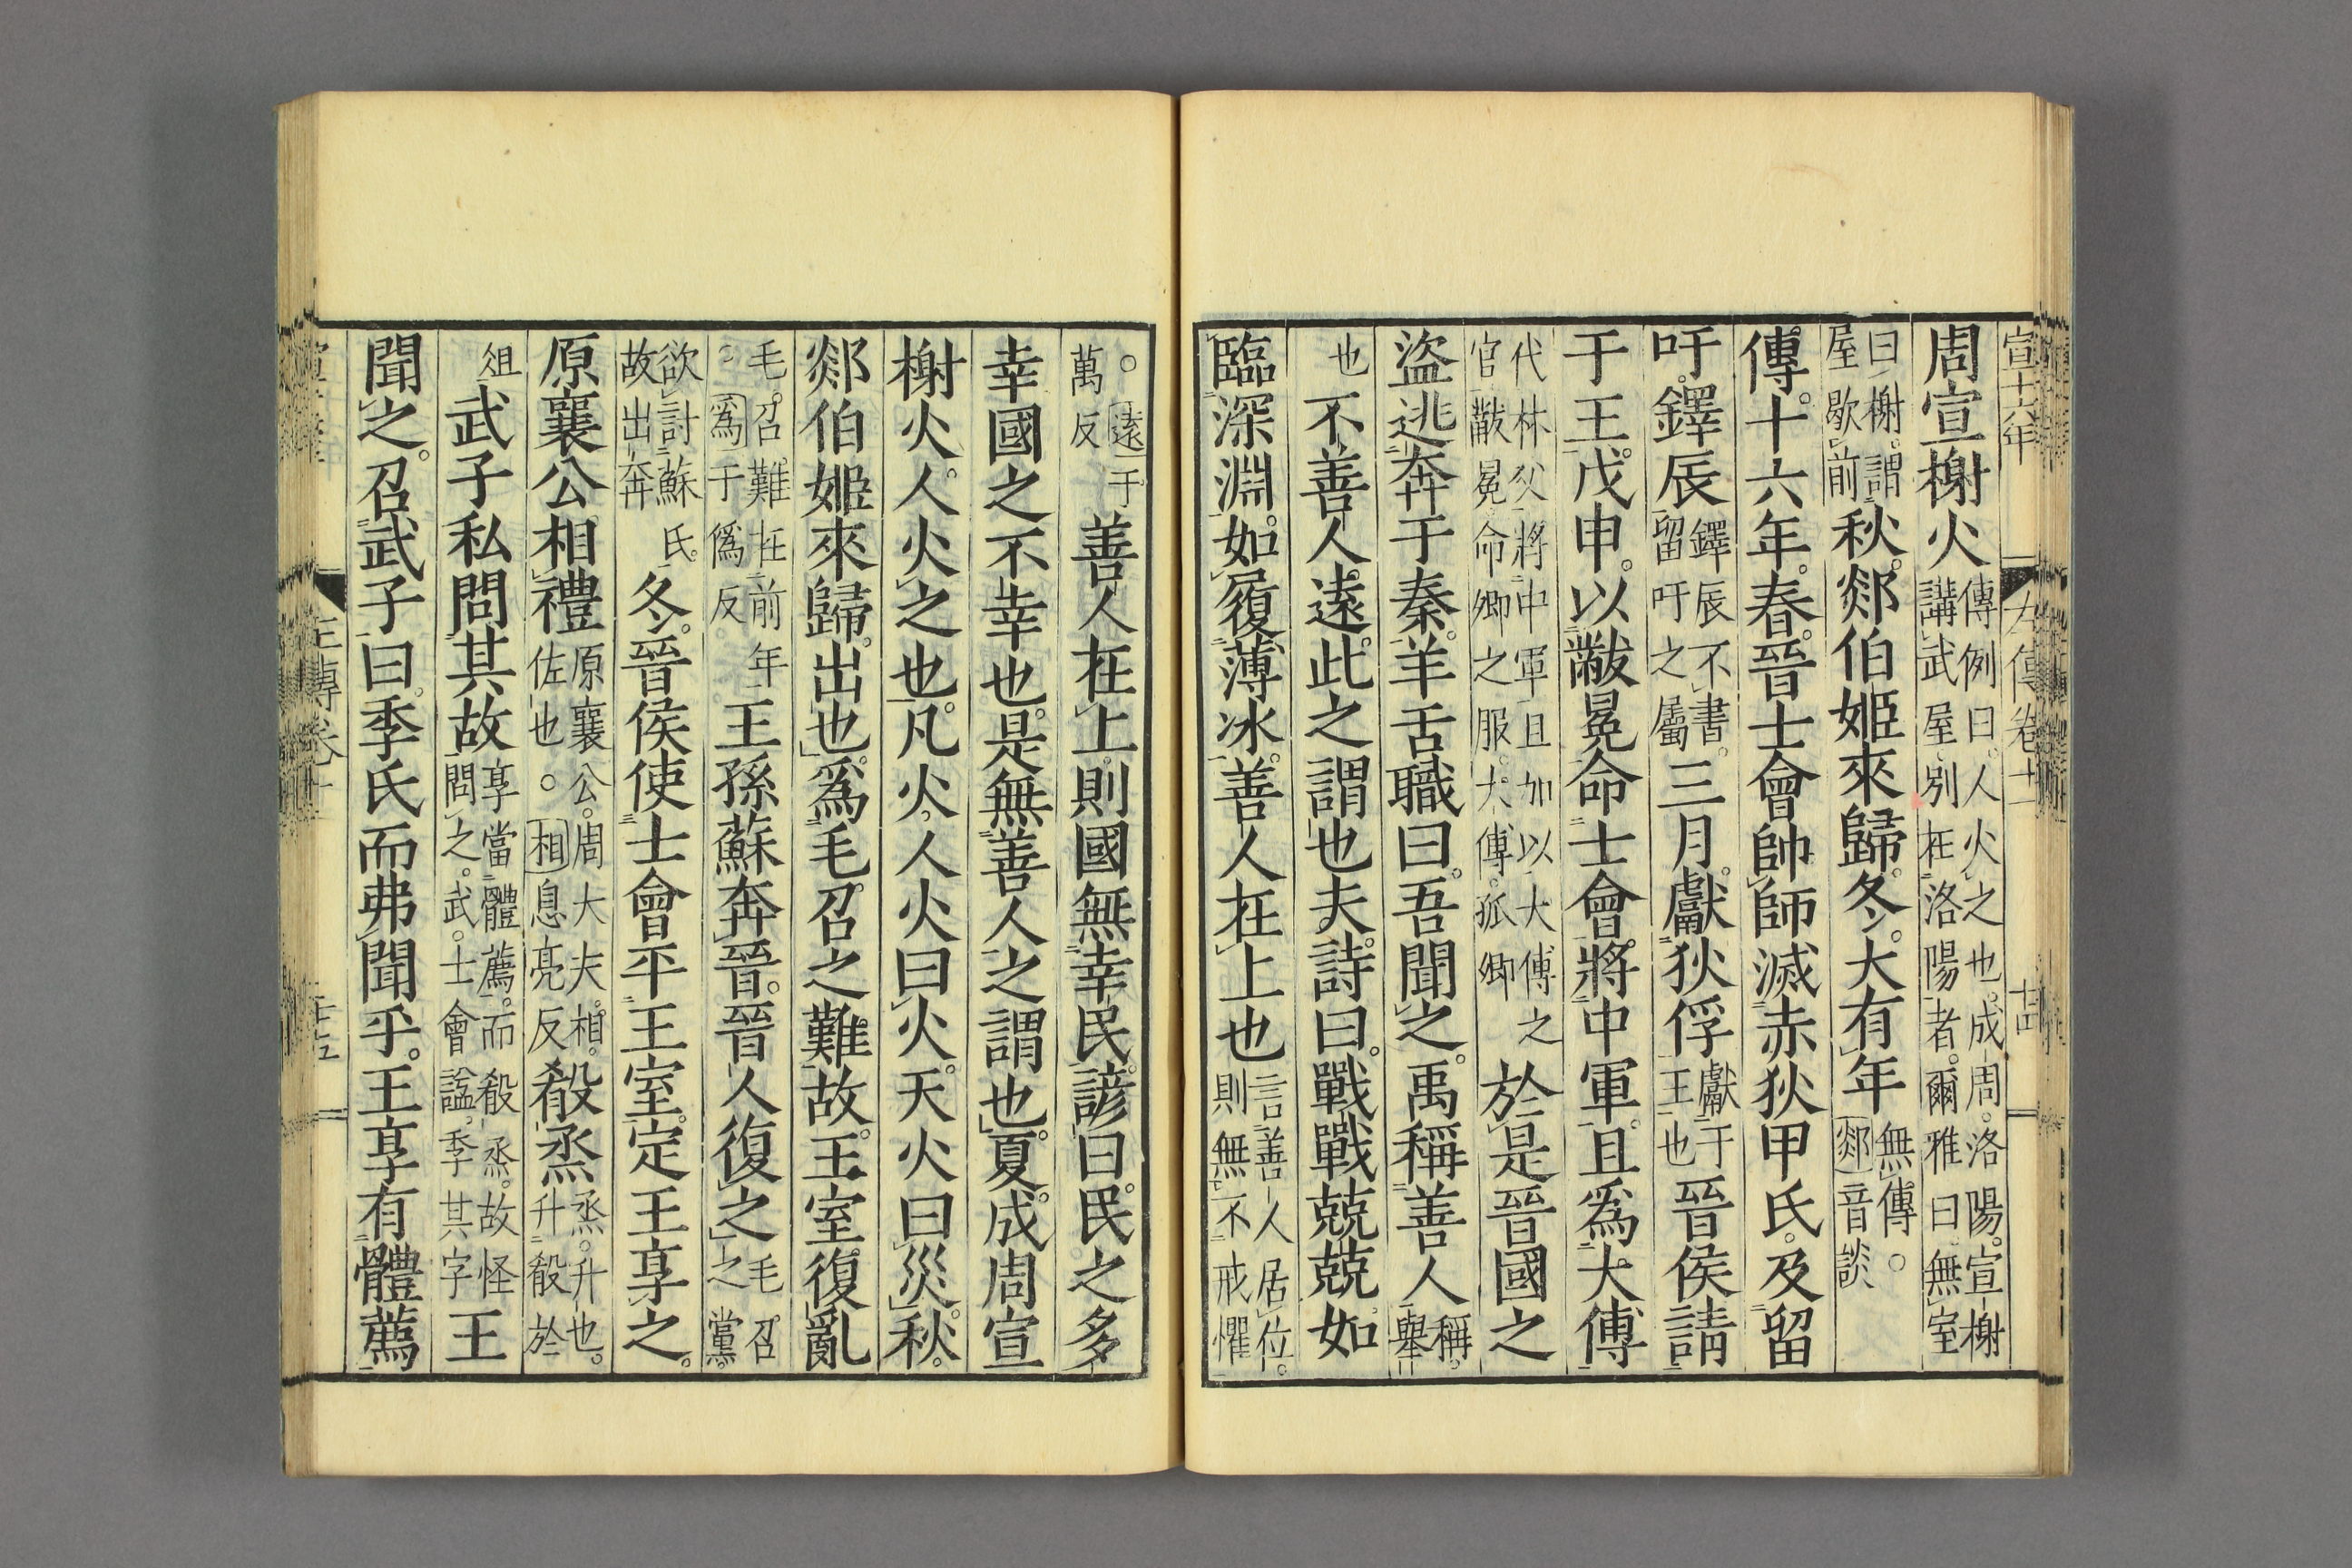 宣十六年 左傳卷十一 十四
周宣榭火傳例曰。人火之也。成周。洛陽。宣榭講武屋。別在洛陽者。爾雅曰。無室
曰榭。謂屋歇前秋。郯伯姬來歸。冬。大有年無傳。○郯音談
傳。十六年。春。晉士會帥師滅赤狄甲氏。及留
吁。鐸辰鐸辰不書。留吁之屬三月。獻狄俘獻于王也晉侯請
于王。戊申。以黻冕命士會。將中軍。且爲大傅
代林父將中軍且加以大傅之官黻冕命卿之服。大傅。孤卿於是晉國之
盜逃奔于秦。羊舌職曰。吾聞之。禹稱善人稱。舉
也不善人。遠。此之謂也夫。詩曰。戰戰兢兢。如
臨深淵。如履薄冰。善人在上也言善人居位。則無不戒懼
○遠于萬反善人在上。則國無幸民。諺曰。民之多
幸國之不幸也。是無善人之謂也。夏。成周宣
榭火。人火之也。凡火。人火曰火。天火曰災。秋。
郯伯姬來歸。出也。爲毛召之難故。王室復亂
毛。召難在前年。○爲于僞反。王孫蘇奔晉。晉人復之毛召之黨。
欲討蘇氏。故出奔冬。晉侯使士會平王室。定王享之。
原襄公相禮原襄公。周大夫。相。佐也。○相息亮反殽烝烝。升也。升殽於
俎武子私問其故享當體薦。而殽烝。故怪問之。武。士會諡。季其字王
聞之。召武子曰。季氏而弗聞乎。王享有體薦